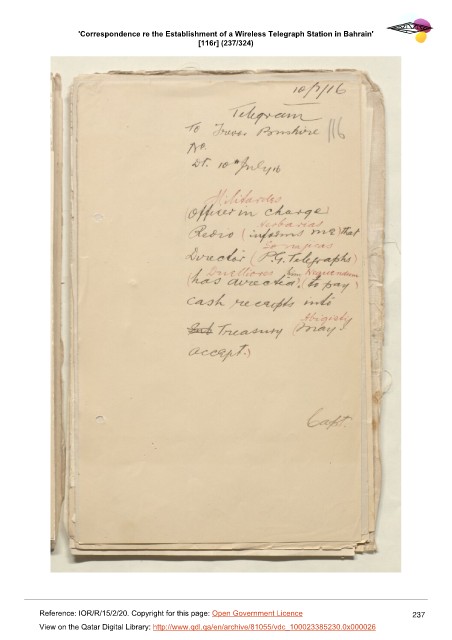 'Correspondence re the Establishment of a Wireless Telegraph Station in Bahrain'
[116r] (237/324)
10/7/16
Telegram
To Trevor Bushire
No.
Dt. 10th July 16
Militardes
(Officer in charge)
Radio (informs me) that
Director (P.G. Telegraphs)
Directions him
(has directed) (to pay)
cash receipts into
Treasury (may
accept.)
Capt.
Reference: IOR/R/15/2/20. Copyright for this page: Open Government Licence
View on the Qatar Digital Library: http://www.qdl.qa/en/archive/81055/vdc_100023385230.0x000026
237